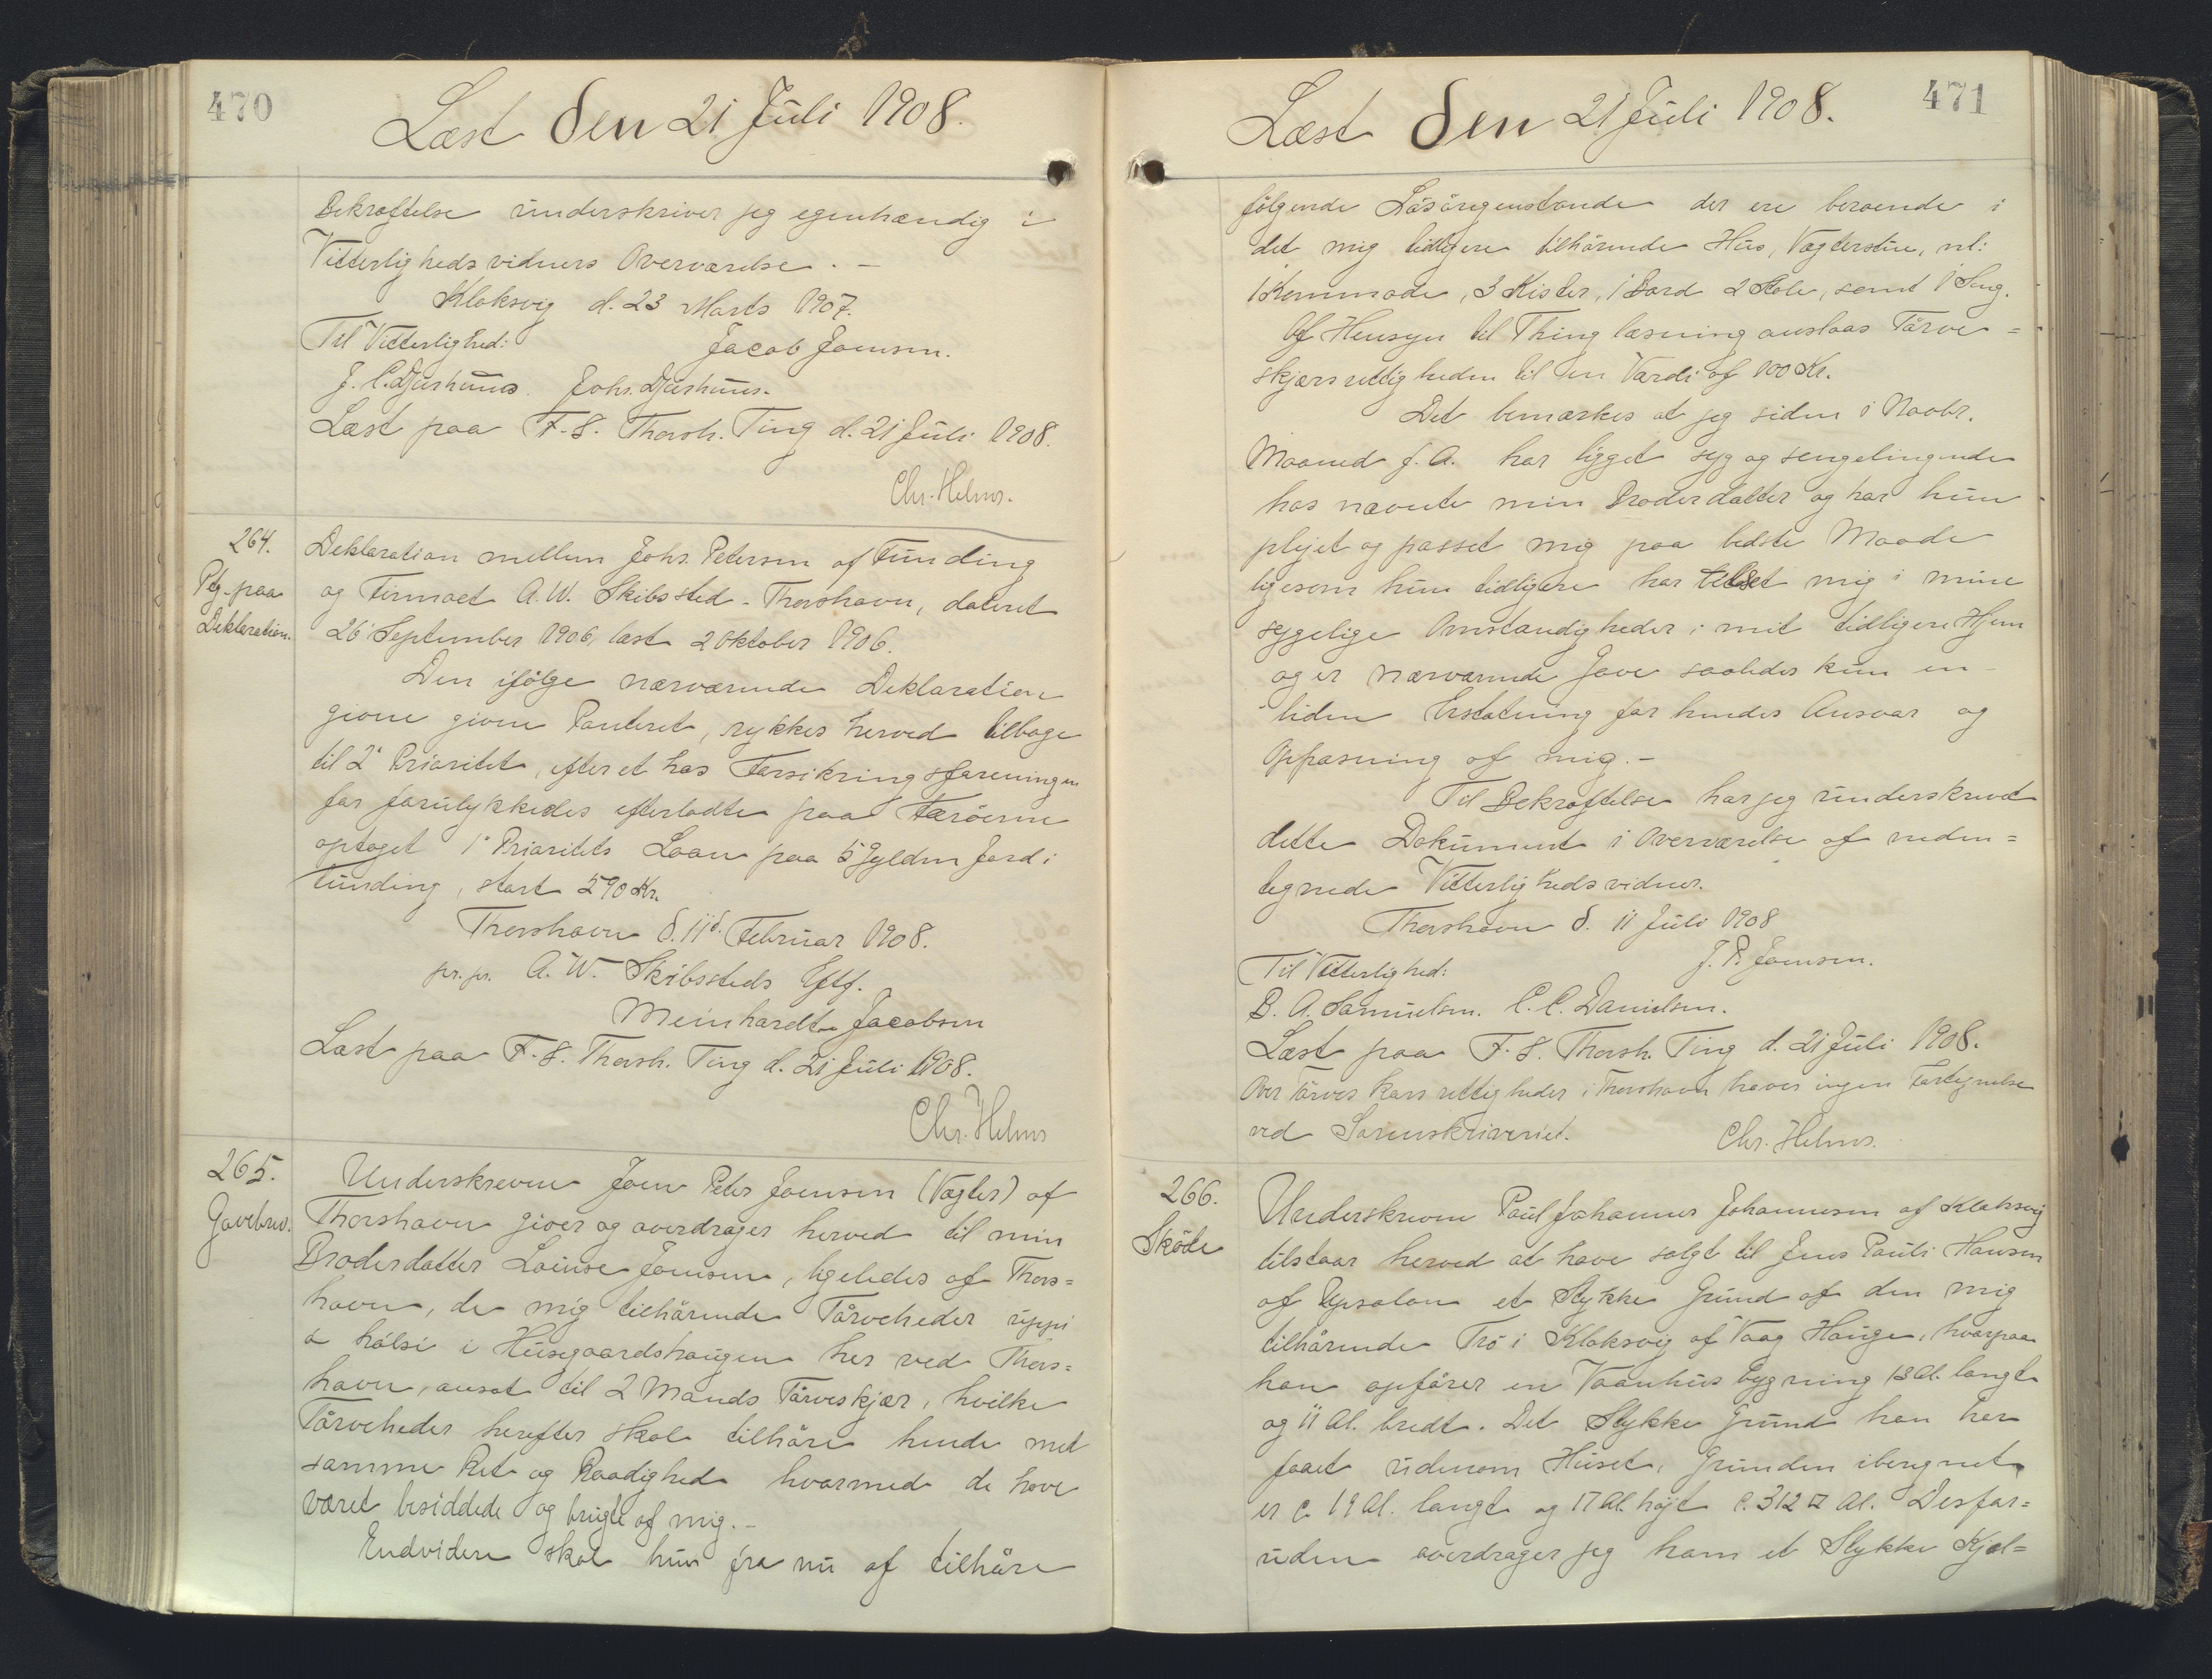 470
Læst den 21 Juli 1908.
Bekræftelse underskriver jeg egenhændig i
Vitterlighedsvidners Overværelse. -
Klaksvig d. 23 Marts 1907.
Til Vitterlighed: Jacob Joensen.
J. C. Djurhuus. Johs. Djurhuus.
Læst paa F.S. Thorsh. Ting d. 21 Juli 1908.
Chr. Helms.
264.
Ptg. paa
Deklaration.
Deklaration mellem Johs. Petersen af Funding
og Firmaet A. W. Skibssted - Thorshavn, dateret
26' September 1906, læst 2 Oktober 1906.
Den ifølge nærværende Deklaration
givne givne Panteret, rykkes herved tilbage
til 2' Prioritet, efter et hos Forsikringsforeningen
for forulykkedes efterladte paa Færøerne
optaget 1' Prioritets Laan paa 5 Gylden Jord i
Funding, stort 590 Kr.
Thorshavn d. 11' Februar 1908.
pr. pr. A. W. Skibssteds Eftf.
Meinhardt Jacobsen
Læst paa F.S. Thorsh. Ting d. 21 Juli 1908.
Chr. Helms
265.
Gavebrev.
Underskrevne Joen Peter Joensen (Vægter) af
Thorshavn giver og overdrager herved til min
Broderdatter Louise Joensen, ligeledes af Thors=
havn, de mig tilhørende Tørveheder uppi
a hálsi i Húsegaardshaugen her ved Thors=
havn, ansat til 2 Mands Tørveskjær, hvilke
Tørveheder herefter skal tilhøre hende med
samme Ret og Raadighed hvormed de have
været besiddede og brugte af mig. -
Endvidere skal hun fra nu af tilhøre
471
Læst den 21 Juli 1908.
følgende Løsøregenstande der ere beroende i
det mig tidligere tilhørende Hus, Vægterstue, nl:
1 Kommode, 3 Kister, 1 Bord 2 Stole, samt 1 Seng.
Af Hensyn til Thinglæsning anslaas Tørve=
skjærsrettigheden til en Værdi af 100 Kr.
Det bemærkes at jeg siden i Novbr.
Maaned f. A. har ligget syg og sengeliggende
hos nævnte min Broderdatter og har hun
plejet og passet mig paa bedste Maade
ligesom hun tidligere har tilset mig i mine
sygelige Omstændigheder i mit tidligere Hjem
og er nærværende Gave saaledes kun en
liden Erstatning for hendes Ansvar og
Oppasning af mig. -
Til Bekræftelse har jeg underskrevet
dette Dokument i Overværelse af neden=
tegnede Vitterlighedsvidner.
Thorshavn d. 11 Juli 1908
Til Vitterlighed: J. P. Joensen.
B. A. Samuelsen. C. C. Danielsen.
Læst paa F.S. Thorsh. Ting d. 21 Juli 1908.
Over Tørveskærsrettigheder i Thorshavn haves ingen Fortegnelse
ved Sorenskriveriet. Chr. Helms.
266.
Skøde
Underskrevne Poul Johannes Johannesen af Klaksvig
tilstaar herved at have solgt til Jens Pauli Hansen
af Upsalon et Stykke Grund af den mig
tilhørende Trø i Klaksvig af Vaag Hauge, hvorpaa
han opfører en Vaanhusbygning 13 Al. langt
og 11 Al. bredt. Det Stykke Grund han har
faaet udenom Huset, Grunden iberegnet,
er c. 19 Al. langt og 17 Al. højt c. 312 □ Al. Desfor=
uden overdrager jeg ham et Stykke Kjæl=